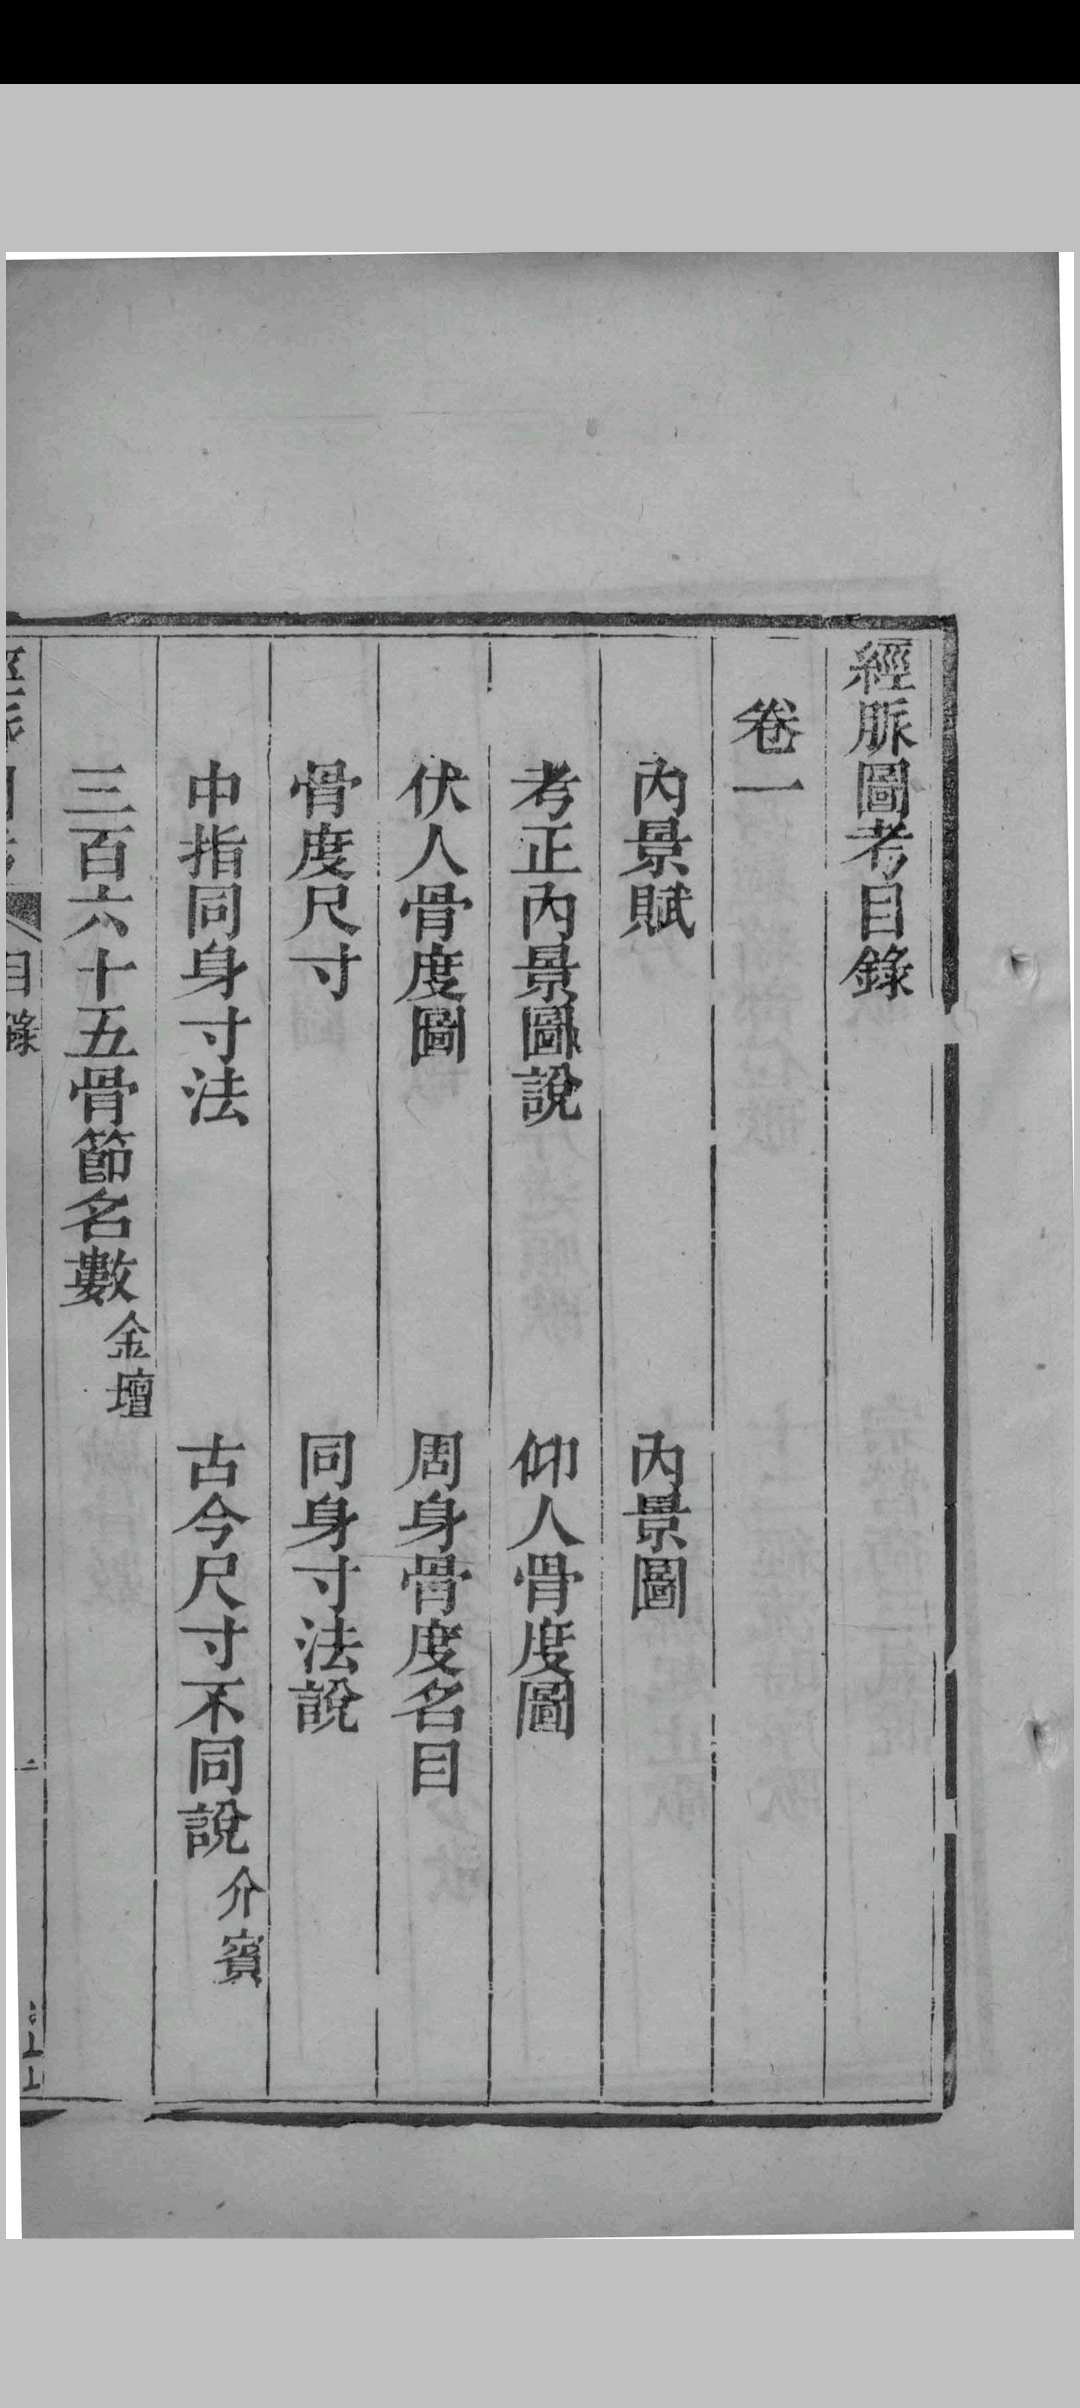 經脈圖考目錄
卷一
內景賦　內景圖
考正內景圖說　仰人骨度圖
伏人骨度圖　周身骨度名目
骨度尺寸　同身寸法說
中指同身寸法　古今尺寸不同說 介賓
三百六十五骨節名數 金壇
目錄
二